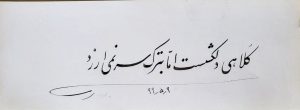 کلاهی دلکش است امّا بترک سر نمی ارزد
۹۹،۵،۹